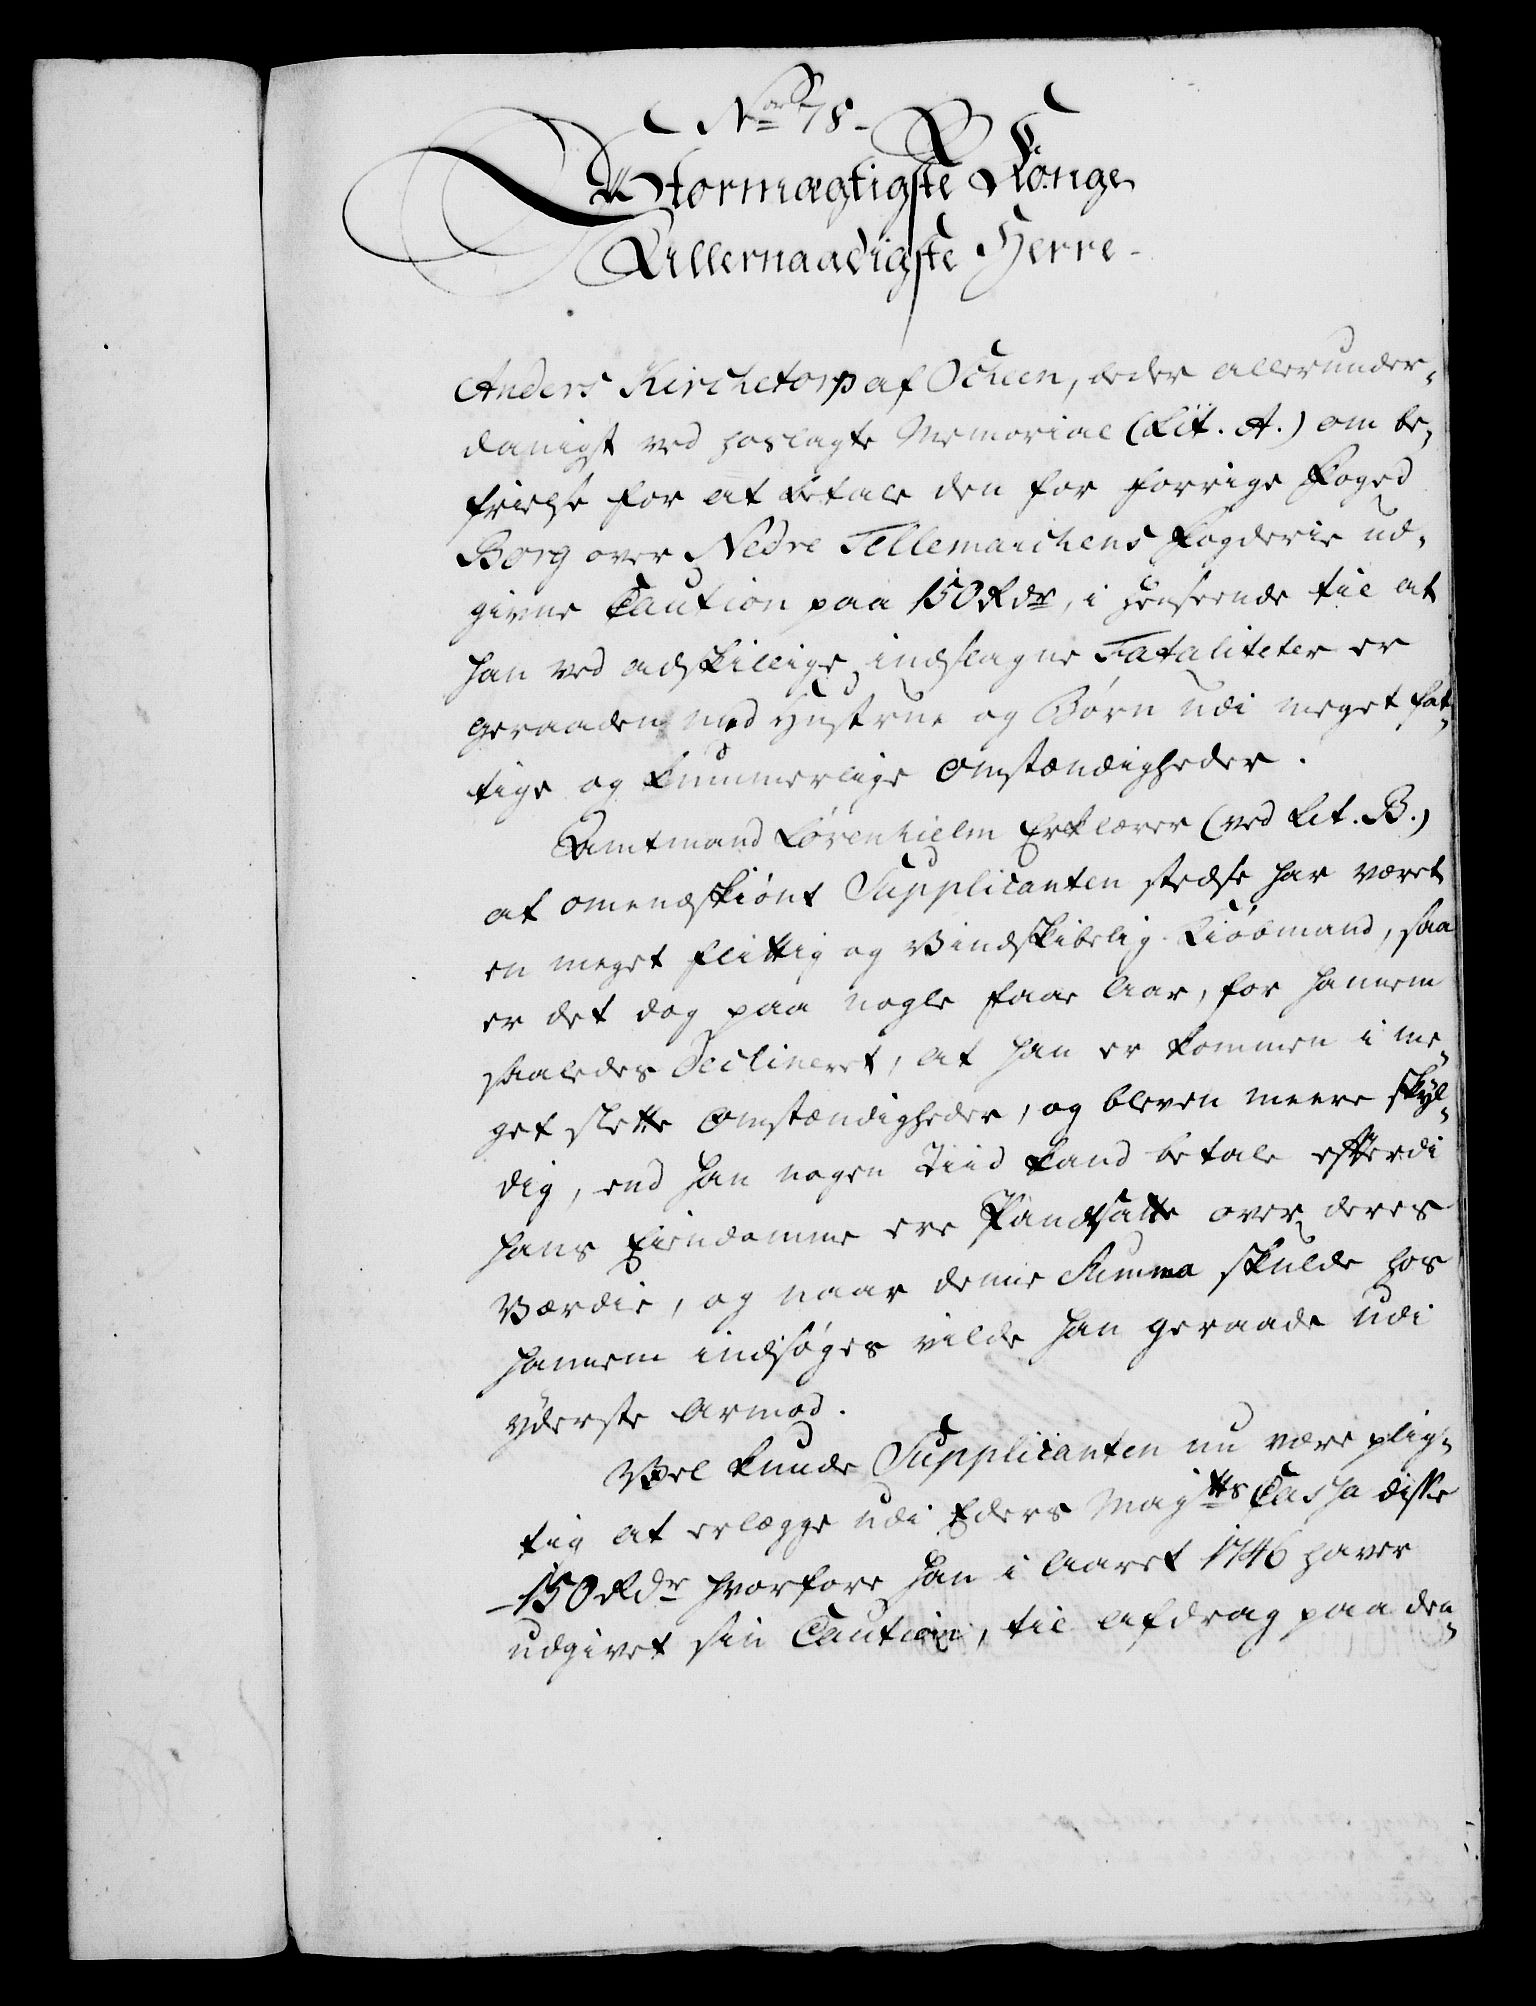 Nor 78.
Stormægtigste Konge
Allernaadigste Herre.
Anders Kirchetorp af Scheen, beder allerunder-
danigst ved hoslagte Memorial (Lit. A.) om be-
frielse for at betale den for forrige Foged
Borg over Nedre Tellemarchens Fogderie ud-
givne Caution paa 150 Rdr, i henseende til at
han ved adskillige indslagne Fataliteter er
geraaden med Hustrue og Børn udi meget fat-
tige og kummerlige Omstændigheder.
Amtmand Lövenhielm Erklærer (ved Lit. B.)
at omendskiönt Supplicanten stedse har været
en meget flittig og Vindskibelig Kiöbmand, saa
er det dog paa nogle faae Aar, for hannem
saaledes Declineret, at han er kommen i me-
get slette Omstændigheder, og bleven meere skyl-
dig, end han nogen Tiid kand betale efterdi
hans Eiendomme ere Pandsatte over deres
Værdie, og naar denne Summa skulde hos
hannem indsøges vilde han geraade udi
yderste Armod.
Vel kunde Supplicanten nu være plig-
tig at erlægge udi Eders Maytts Cassa disse
150 Rdr hvorfore han i Aaret 1746 haver
udgivet sin Caution, til Afdrag paa den